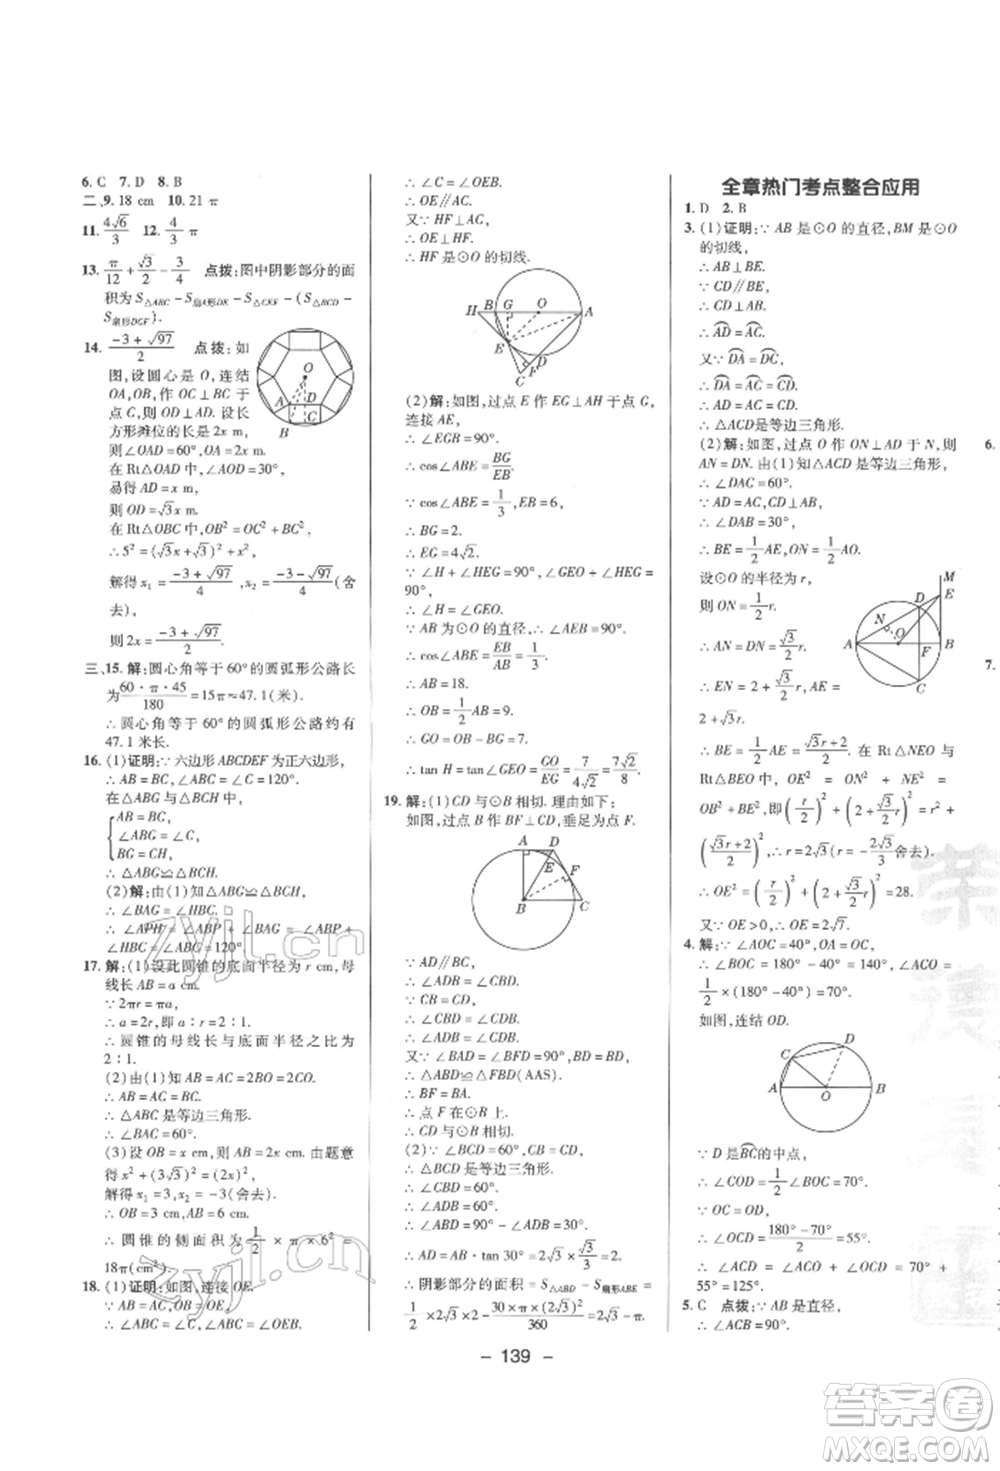 6. C 7. D 8. B
二、9. 18 cm 10. 21 π
11. 4√6/3 12. 4/3 π
13. π/12 + √3/2 − 3/4 点拨：图中阴影部分的面
积为S△ABC − S扇形ADE − S△CEF − (S△BCD −
S扇形DCF).
14. (−3+√97)/2 点拨：如
图,设圆心是 O,连结
OA,OB,作 OC⊥BC 于
点 G,则 OD⊥AD. 设长
方形摊位的宽是 x m,则长是 2x m,
则∠OAD=60°,OA=2x m.
在 Rt△OAD 中,∠AOD=30°,
易得 AD=x m,
则 OD=√3x m.
在 Rt△OBC 中,OB²=OC²+BC²,
∴5²=(√3x+√3)²+x²,
解得 x₁=(−3+√97)/4, x₂=(−3−√97)/4(舍
去),
则 2x=(−3+√97)/2.
三、15. 解：圆心角等于 60°的圆弧形公路长
为(60·π·45)/180=15π≈47.1(米).
∴圆心角等于 60°的圆弧形公路约有
47.1 米长.
16. (1)证明：∵六边形 ABCDEF 为正六边形,
∴AB=BC,∠ABC=∠C=120°.
在△ABG 与△BCH 中,
AB=BC,
∠ABG=∠C,
BG=CH,
∴△ABG≌△BCH.
(2)解：由(1)知△ABG≌△BCH,
∴∠BAG=∠HBC.
∴∠APH=∠ABP+∠BAG=∠ABP+
∠HBC=∠ABC=120°.
17. 解：(1)设此圆锥的底面半径为 r cm,母
线长 AB=a cm.
∵2πr=πa,
∴a=2r,即 a∶r=2∶1.
∴圆锥的母线长与底面半径之比为
2∶1.
(2)由(1)知 AB=AC=2OB=2OC,
∴AB=AC=BC.
∴△ABC 是等边三角形.
∴∠BAC=60°.
(3)设 OB=x cm,则由题意可知
x²+(3√3)²=(2x)²,
解得 x₁=3,x₂=−3(舍去).
∴OB=3 cm,AB=6 cm.
∴圆锥的侧面积为 1/2×π×6²=
18π(cm²).
18. (1)证明：如图,连接 OE.
∵AB=AC,∴∠ABC=∠C.
∵OB=OE,∴∠ABC=∠OEB.
∴∠C=∠OEB.
∴OE∥AC.
又∵HF⊥AC,
∴OE⊥HF.
∴HF 是⊙O 的切线.
H B G O A
E
C F D
(2)解：如图,过点 E 作 EG⊥AH 于点 G,
连接 AE,
∴∠EGB=90°.
∴cos∠ABE=BG/EB.
∵cos∠ABC=1/3,EB=6,
∴BG=2.
∴EG=4√2.
∵∠H+∠HEG=90°,∠GEO+∠HEG=
90°,
∴∠H=∠GEO.
∵AB 为⊙O 的直径,∴∠AEB=90°.
∴cos∠ABE=EB/AB=1/3.
∴AB=18.
∴OB=1/2AB=9.
∴GO=OB−BG=7.
∴tan H=tan∠GEO=GO/EG=7/(4√2)=7√2/8.
19. 解：(1)CD 与⊙B 相切. 理由如下：
如图,过点 B 作 BF⊥CD,垂足为点 F.
A D
E F
B C
∵AD∥BC,
∴∠ADB=∠CBD.
∵CB=CD,
∴∠CBD=∠CDB.
∴∠ADB=∠CDB.
又∵∠BAD=∠BFD=90°,BD=BD,
∴△ABD≌△FBD(AAS).
∴BF=BA.
∴点 F 在⊙B 上.
∴CD 与⊙B 相切.
(2)∵∠BCD=60°,CB=CD,
∴△BCD 是等边三角形.
∴∠CBD=60°.
∴∠ADB=60°.
∴∠ABD=90°−∠ADB=30°.
∴AD=AB·tan 30°=2√3×√3/3=2.
∴阴影部分的面积=S△ABD−S扇形ABE=
1/2×2√3×2−(30×π×(2√3)²)/360=2√3−π.
全章热门考点整合应用
1. D 2. B
3. (1)证明：∵AB 是⊙O 的直径,BM 是⊙O
的切线,
∴AB⊥BE.
∵CD∥BE,
∴CD⊥AB.
∴AD=AC.
又∵DA=DC,
∴AD=AC=CD.
∴△ACD是等边三角形.
(2)解：如图,过点 O 作 ON⊥AD 于 N,则
AN=DN. 由(1)知△ACD 是等边三角形,
∴∠DAC=60°.
∵AD=AC,CD⊥AB,
∴∠DAB=30°.
∴BE=1/2AE,ON=1/2AO.
设⊙O 的半径为 r,
则 ON=1/2r,
∴AN=DN=√3/2r.
∴EN=2+√3/2r,AE=
2+√3r.
M
D E
N
O
A F B
C
∴BE=1/2AE=(√3r+2)/2. 在 Rt△NEO 与
Rt△BEO 中,OE²=ON²+NE²=
OB²+BE²,即(r/2)²+(2+√3r/2)²=r²+
((√3r+2)/2)²,∴r=2√3(r=−2√3/3舍去).
∴OE²=(r/2)²+(2+√3r/2)²=28.
又∵OE>0,∴OE=2√7.
4. 解：∵∠AOC=40°,OA=OC,
∴∠BOC=180°−∠AOC=140°,∠ACO=
1/2×(180°−40°)=70°.
如图,连结 OD.
C D
A O B
∵D 是BC的中点,
∴∠COD=1/2∠BOC=70°.
∵OC=OD,
∴∠OCD=(180°−70°)/2=55°.
∴∠ACD=∠ACO+∠OCD=70°+
55°=125°.
5. C 点拨：∵AB 是直径,
∴∠ACB=90°.
6.
7.
– 139 –
zyjl.cn
zyjl.cn
答案圈
MXQE.COM